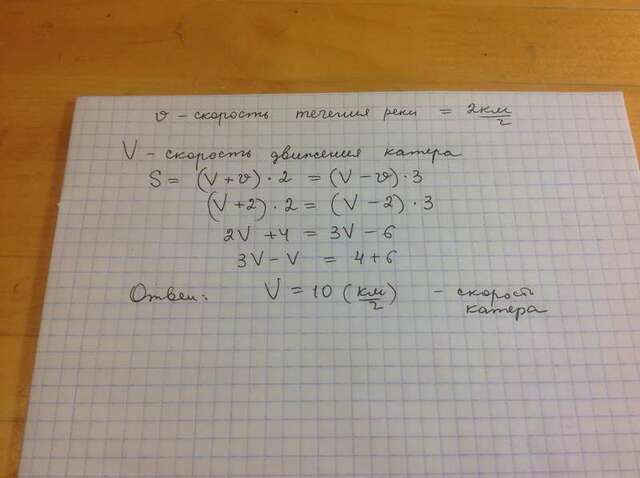 v – скорость течения реки = 2 км/ч
V – скорость движения катера
S = (V + v) · 2 = (V – v) · 3
(V + 2) · 2 = (V – 2) · 3
2V + 4 = 3V – 6
3V – V = 4 + 6
Ответ: V = 10 (км/ч) – скорость
катера